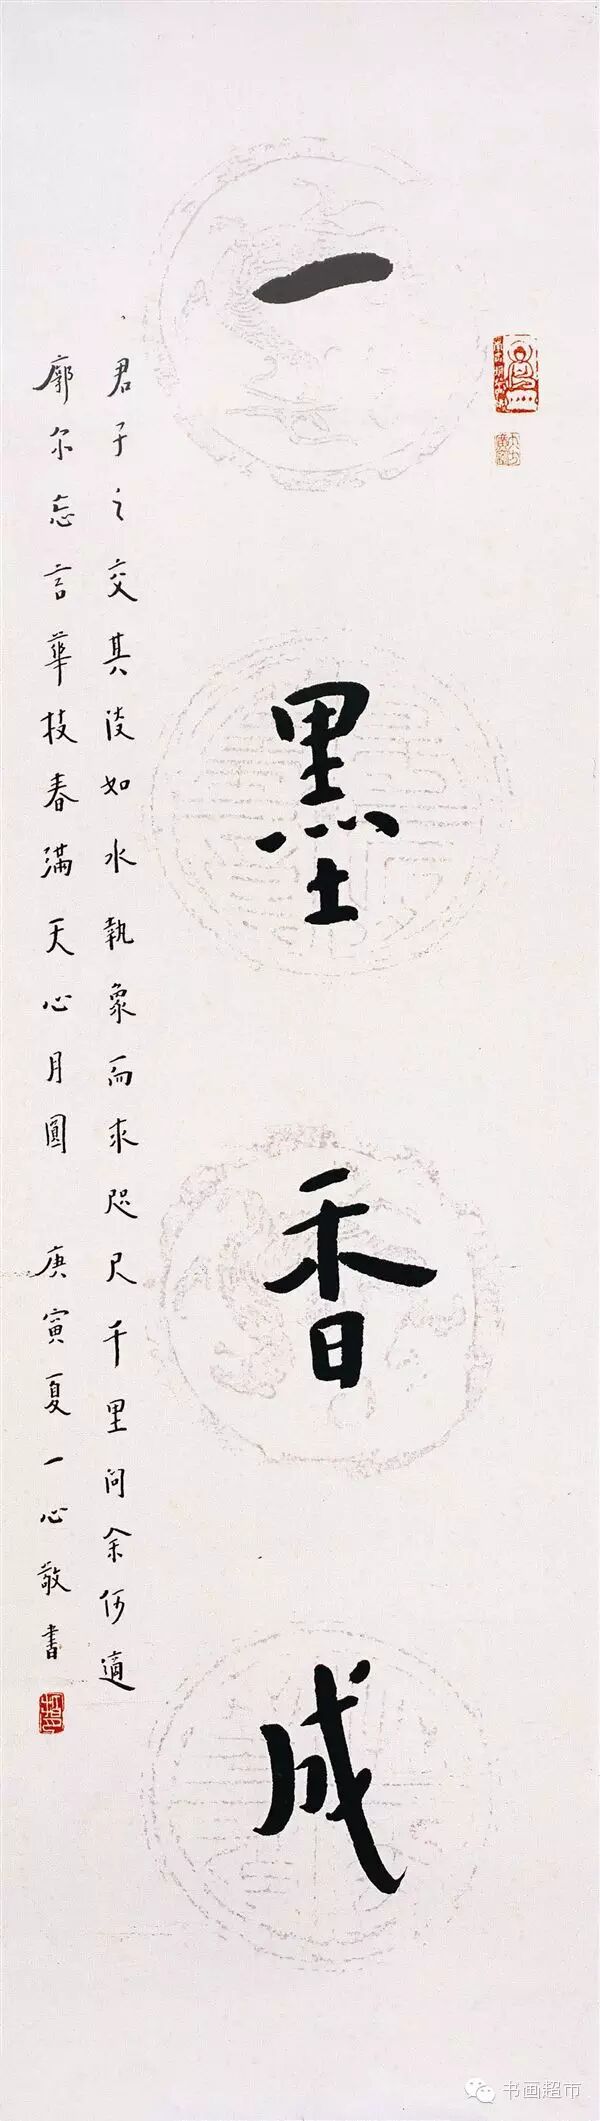 一墨香成
君子之交其淡如水執象而求咫尺千里问余何適
廓尔忘言華枝春滿天心月圓 庚寅夏一心敬書
书画超市